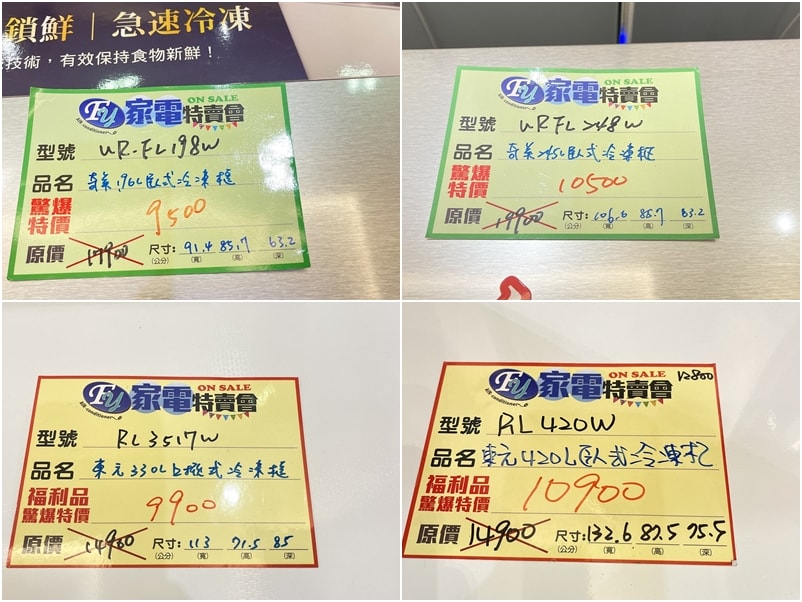 鎖鮮 | 急速冷凍
技術，有效保持食物新鮮！
Fu 家電特賣會 ON SALE
Air conditioner
型號 UR-FL198W
品名 奇美196L臥式冷凍櫃
驚爆特價 9500
原價 17900 尺寸: 91.4 85.7 63.2
(公分) (寬) (高) (深)
Fu 家電特賣會 ON SALE
Air conditioner
型號 URFL248W
品名 奇美245L臥式冷凍櫃
驚爆特價 10500
原價 19900 尺寸: 106.6 85.7 63.2
(公分) (寬) (高) (深)
Fu 家電特賣會 ON SALE
Air conditioner
型號 RL3517W
品名 東元330L上掀式冷凍櫃
福利品 驚爆特價 9900
原價 14900 尺寸: 113 71.5 85
(公分) (寬) (高) (深)
Fu 家電特賣會 ON SALE 12800
Air conditioner
型號 RL420W
品名 東元420L臥式冷凍
福利品 驚爆特價 10900
原價 14900 尺寸: 132.6 87.5 75.5
(公分) (寬) (高) (深)